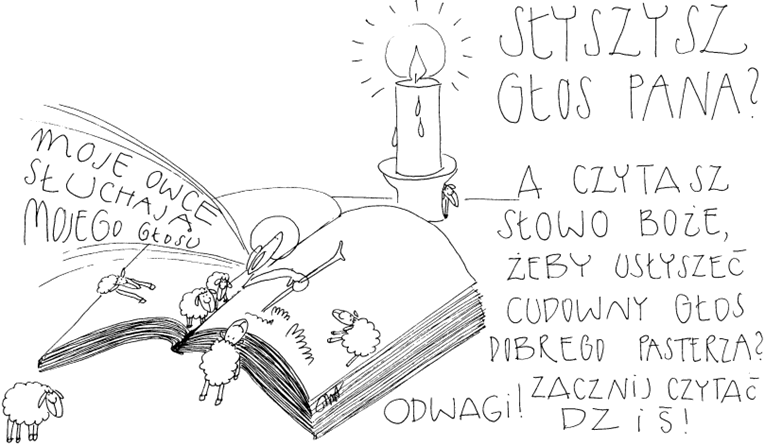 MOJE OWCE
SŁUCHAJĄ
MOJEGO GŁOSU
SŁYSZYSZ
GŁOS PANA?
A CZYTASZ
SŁOWO BOŻE,
ŻEBY USŁYSZEĆ
CUDOWNY GŁOS
DOBREGO PASTERZA?
ODWAGI! ZACZNIJ CZYTAĆ
DZIŚ!